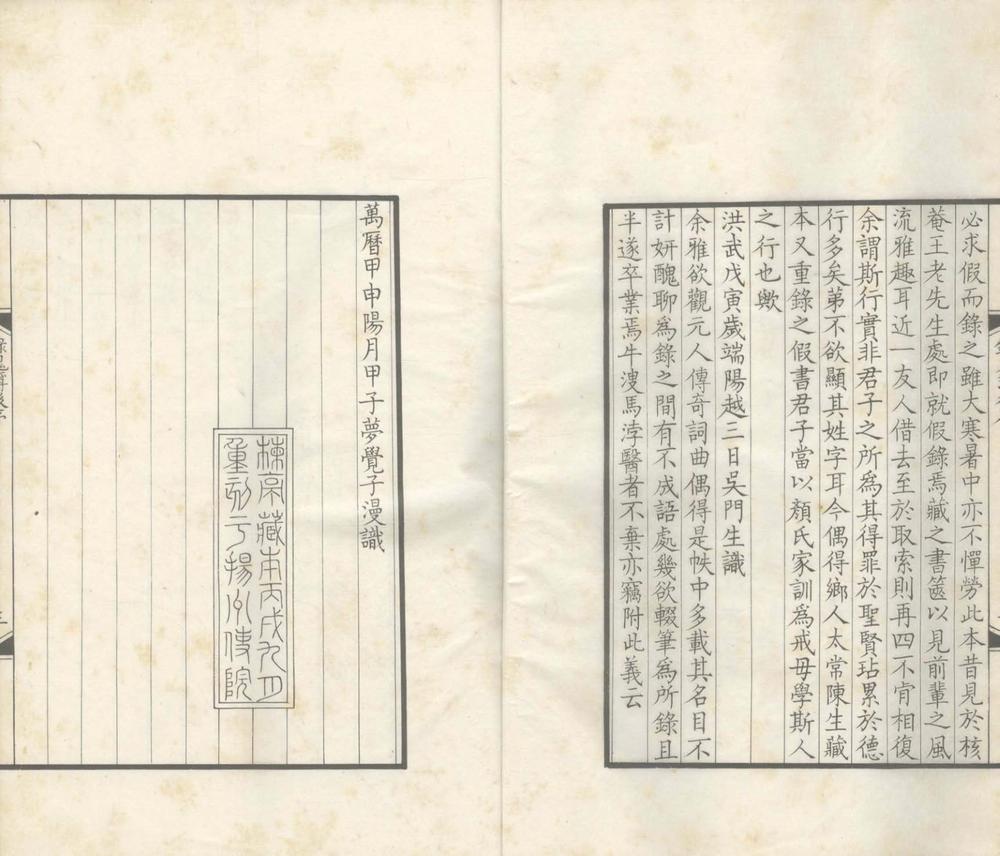 必求假而錄之雖大寒暑中亦不憚勞此本昔見於核
菴王老先生處即就假錄焉藏之書篋以見前輩之風
流雅趣耳近一友人借去至於取索則再四不肯相復
余謂斯行實非君子之所為其得罪於聖賢玷累於德
行多矣第不欲顯其姓字耳今偶得鄉人太常陳生藏
本又重錄之假書君子當以顏氏家訓為戒毋學斯人
之行也歟
洪武戊寅歲端陽越三日吳門生識
余雅欲觀元人傳奇詞曲偶得是帙中多載其名目不
計妍醜聊為錄之間有不成語處幾欲輟筆為所錄且
半遂卒業焉牛溲馬浡醫者不棄亦竊附此義云
萬曆甲申陽月甲子夢覺子漫識
楝亭藏本丙戌九月
重刻于揚州使院